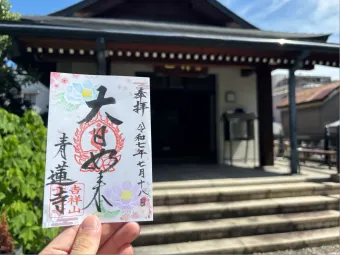 奉拝
令和七年七月十八日
大日如来
吉祥山
青蓮寺